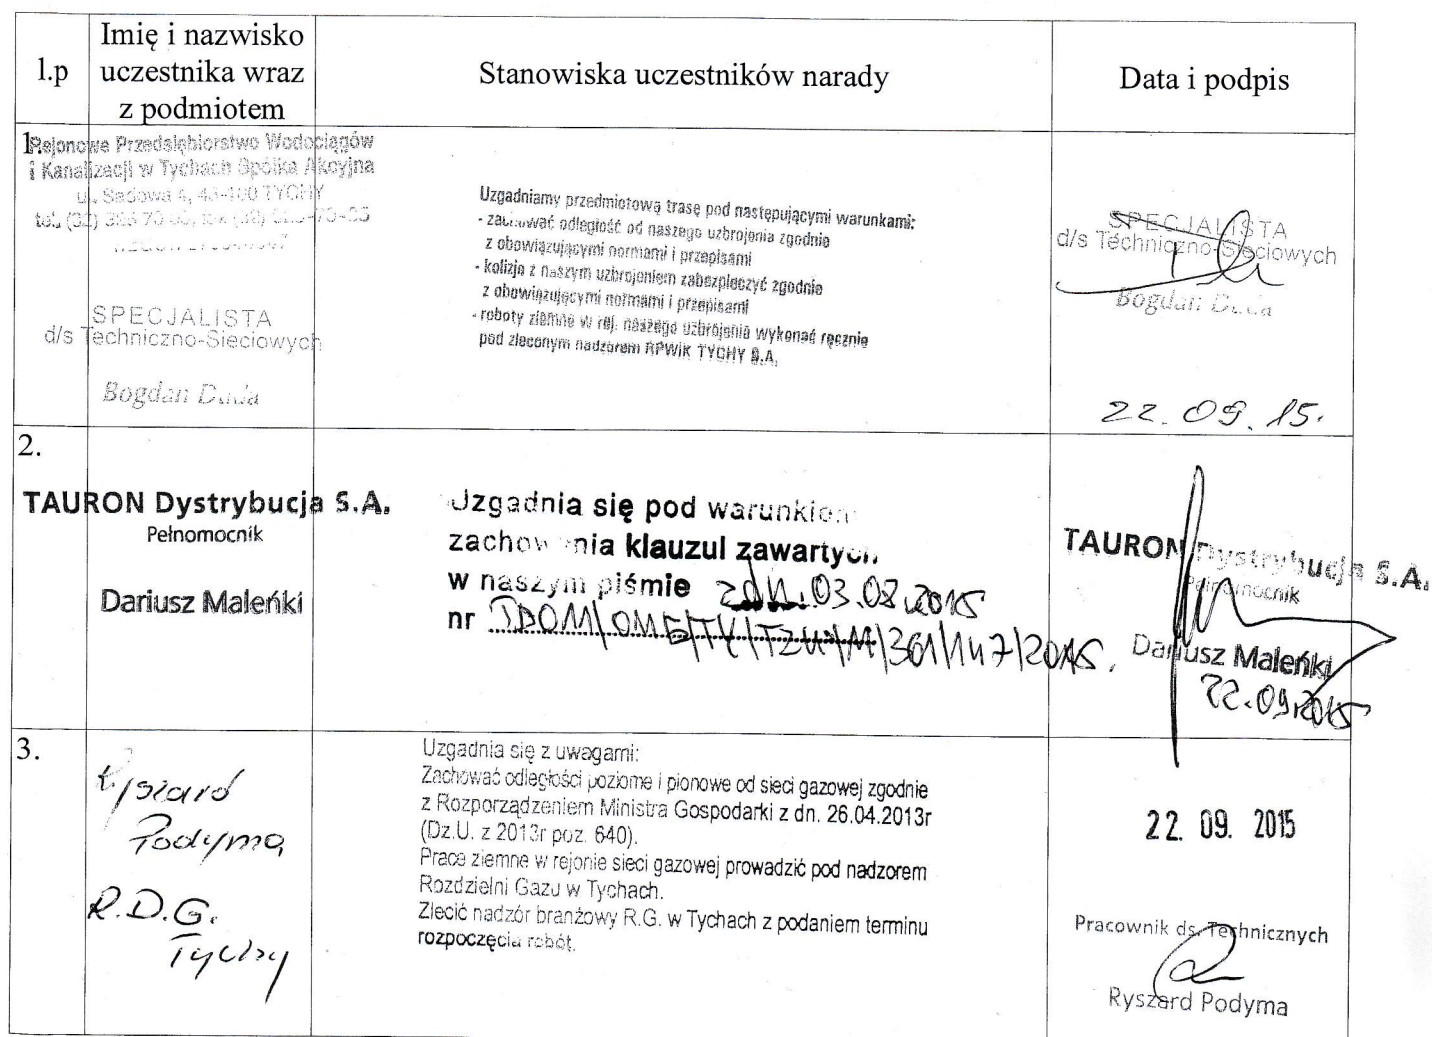 l.p
Imię i nazwisko
uczestnika wraz
z podmiotem
Stanowiska uczestników narady
Data i podpis
1.
Rejonowe Przedsiębiorstwo Wodociągów
i Kanalizacji w Tychach Spółka Akcyjna
ul. Sadowa 4, 43-100 TYCHY
tel. (32)
SPECJALISTA
d/s Techniczno-Sieciowych
Bogdan Duda
Uzgadniamy przedmiotową trasę pod następującymi warunkami:
- zachować odległość od naszego uzbrojenia zgodnie
z obowiązującymi normami i przepisami
- kolizje z naszym uzbrojeniem zabezpieczyć zgodnie
z obowiązującymi normami i przepisami
- roboty ziemne w rej. naszego uzbrojenia wykonać ręcznie
pod zleconym nadzorem RPWiK TYCHY S.A.
SPECJALISTA
d/s Techniczno-Sieciowych
Bogdan Duda
22.09.15.
2.
TAURON Dystrybucja S.A.
Pełnomocnik
Dariusz Maleńki
Uzgadnia się pod warunkiem
zachowania klauzul zawartych
w naszym piśmie z dn. 03.08.2015
nr
TAURON Dystrybucja S.A.
Pełnomocnik
Dariusz Maleńki
22.09.2015
3.
Ryszard
Podyma
R.D.G.
Tychy
Uzgadnia się z uwagami:
Zachować odległości poziome i pionowe od sieci gazowej zgodnie
z Rozporządzeniem Ministra Gospodarki z dn. 26.04.2013r
(Dz.U. z 2013r poz. 640).
Prace ziemne w rejonie sieci gazowej prowadzić pod nadzorem
Rozdzielni Gazu w Tychach.
Zlecić nadzór branżowy R.G. w Tychach z podaniem terminu
rozpoczęcia robót.
22. 09. 2015
Pracownik ds. Technicznych
Ryszard Podyma